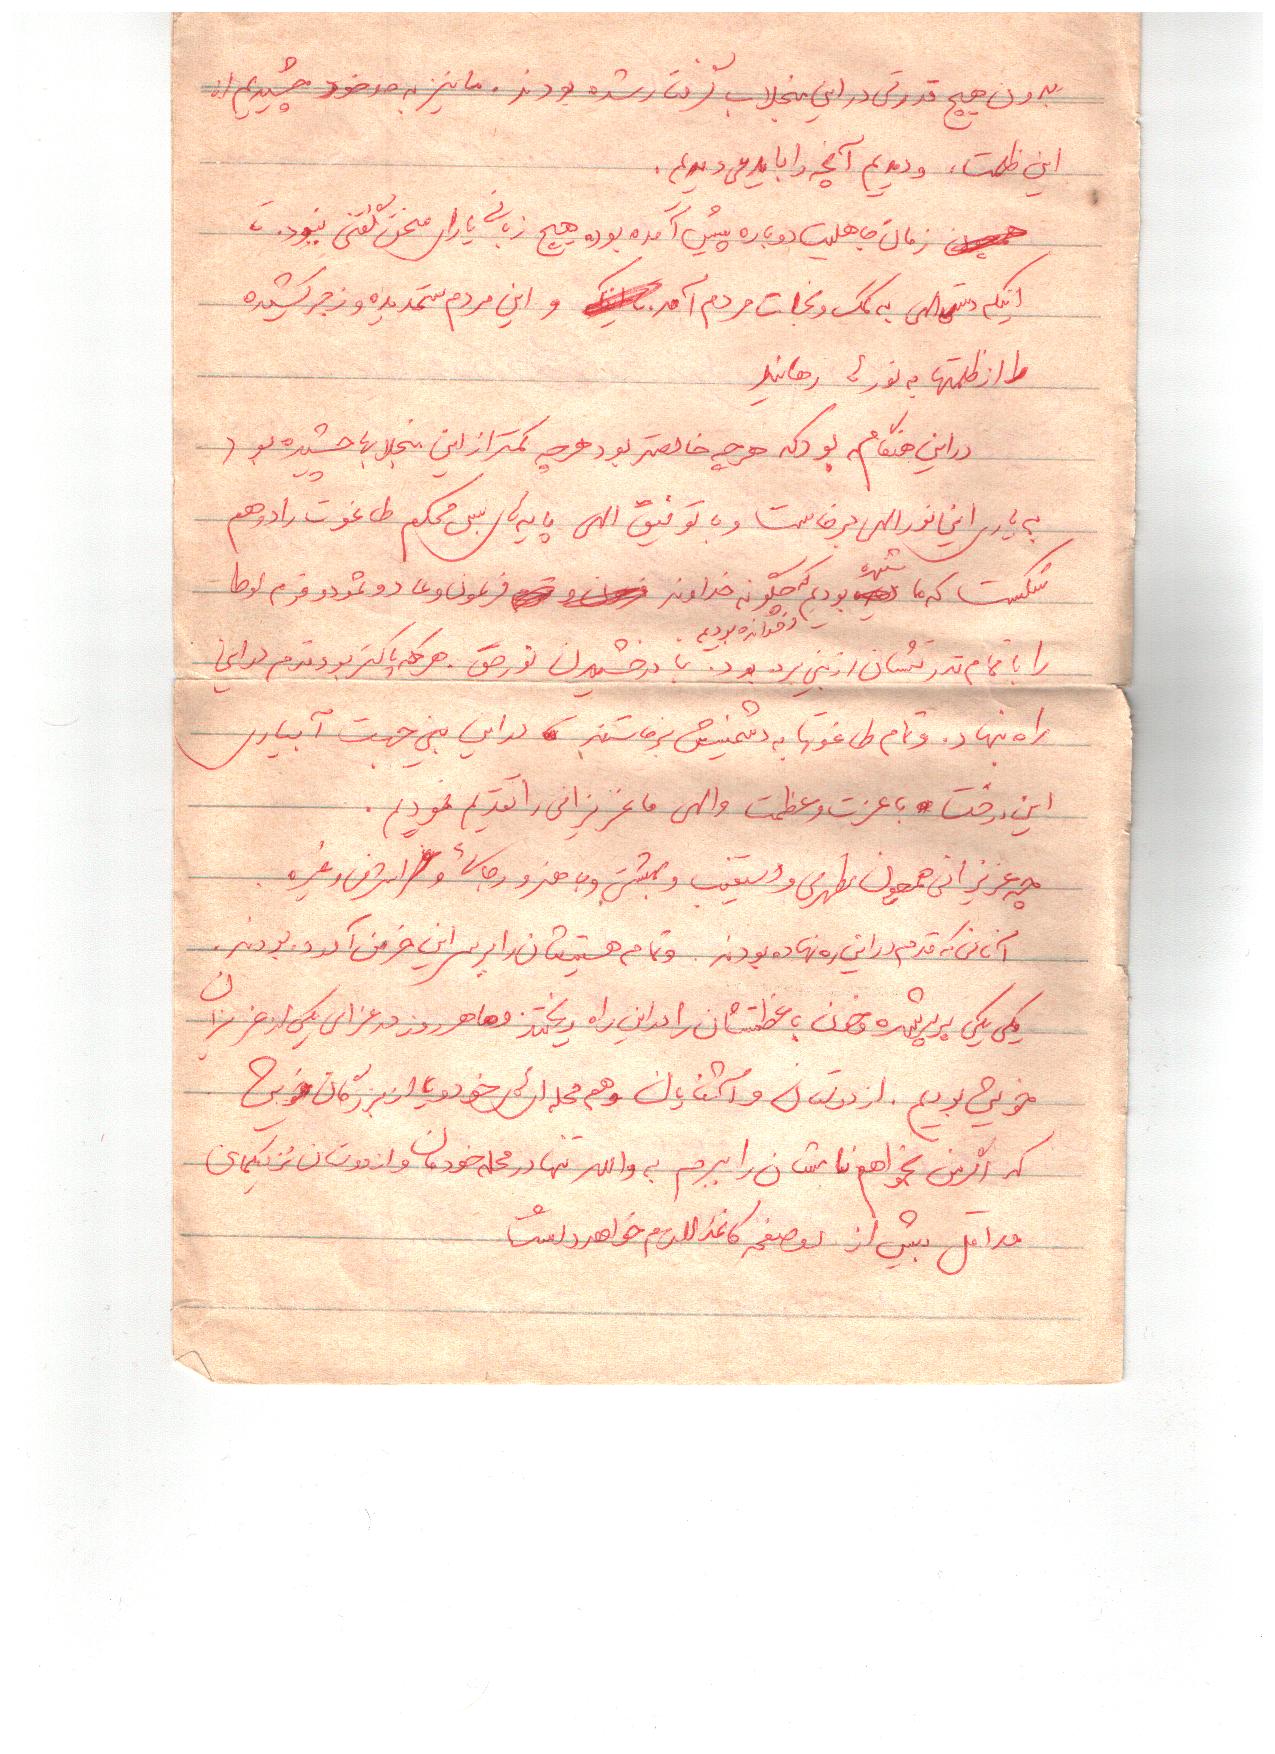 بدون هیچ قدرتی در این منجلاب گرفتار شده بودند. ما نیز به حد خود چشیدیم از
این ظلمت، و دیدیم آنچه را باید می دیدیم.
زمان جاهلیت دوباره پیش آمده بود هیچ زبانی یارای سخن گفتن نبود. تا
اینکه دست الهی به کمک و نجات مردم آمد. و این مردم ستمدیده و زجر کشیده
را از ظلمتها به نور رهانید
در این هنگام بود که هر چه خالصتر بود هر چه کمتر از این منجلابها چشیده بود
به یاری این نور الهی برخاست و با توفیق الهی پایه های بس محکم طاغوت را درهم
شکست که ما شنیده بودیم و خوانده بودیم که چگونه خداوند فرعون و عاد و ثمود و قوم لوط
را با تمام قدرتشان از بین برده بود. با درخشیدن نور حق. هر که پاکتر بود قدم در این
راه نهاد. و تمام طاغوتها به دشمنیش برخاستند در این بین جهت آبیاری
این درخت با عزت و عظمت والهی ما عزیزانی را تقدیم نمودیم.
چه عزیزانی همچون مطهری و دستغیب و بهشتی و باهنر و رجائی و اشرفی و غیره.
آنانی که قدم در این ره نهاده بودند. و تمام هستیشان را بر سر این خرمن آورده بودند.
یکی یکی پرپر شده و خون با عظمتشان را در این راه ریختند و ما هر روز در عزای یکی از عزیزان
خویش بودیم. از دوستان و آشنایان و هم محله ای های خود و یا از بزرگان خویش
که اگر من بخواهم نامشان را ببرم به والله تنها در محله خودمان و از دوستان نزدیکمان
حداقل بیش از دو صفحه کاغذ لازم خواهد داشت